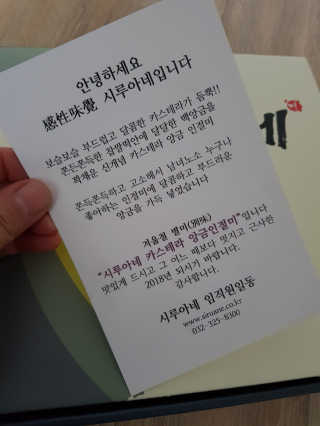 안녕하세요
感性味覺 시루아네입니다
보슬보슬 부드럽고 달콤한 카스테라가 듬뿍!!
쫀득쫀득한 찹쌀떡안에 달달한 백앙금을
꽉채운 신개념 카스테라 앙금 인절미
쫀득쫀득하고 고소해서 남녀노소 누구나
좋아하는 인절미에 달콤하고 부드러운
앙금을 가득 넣었습니다
겨울철 별미(別味)
"시루아네 카스테라 앙금인절미"입니다
맛있게 드시고 그 어느 때보다 멋지고 근사한
2018년 되시기 바랍니다.
감사합니다.
시루아네 임직원일동
www.siruane.co.kr
032-325-8300